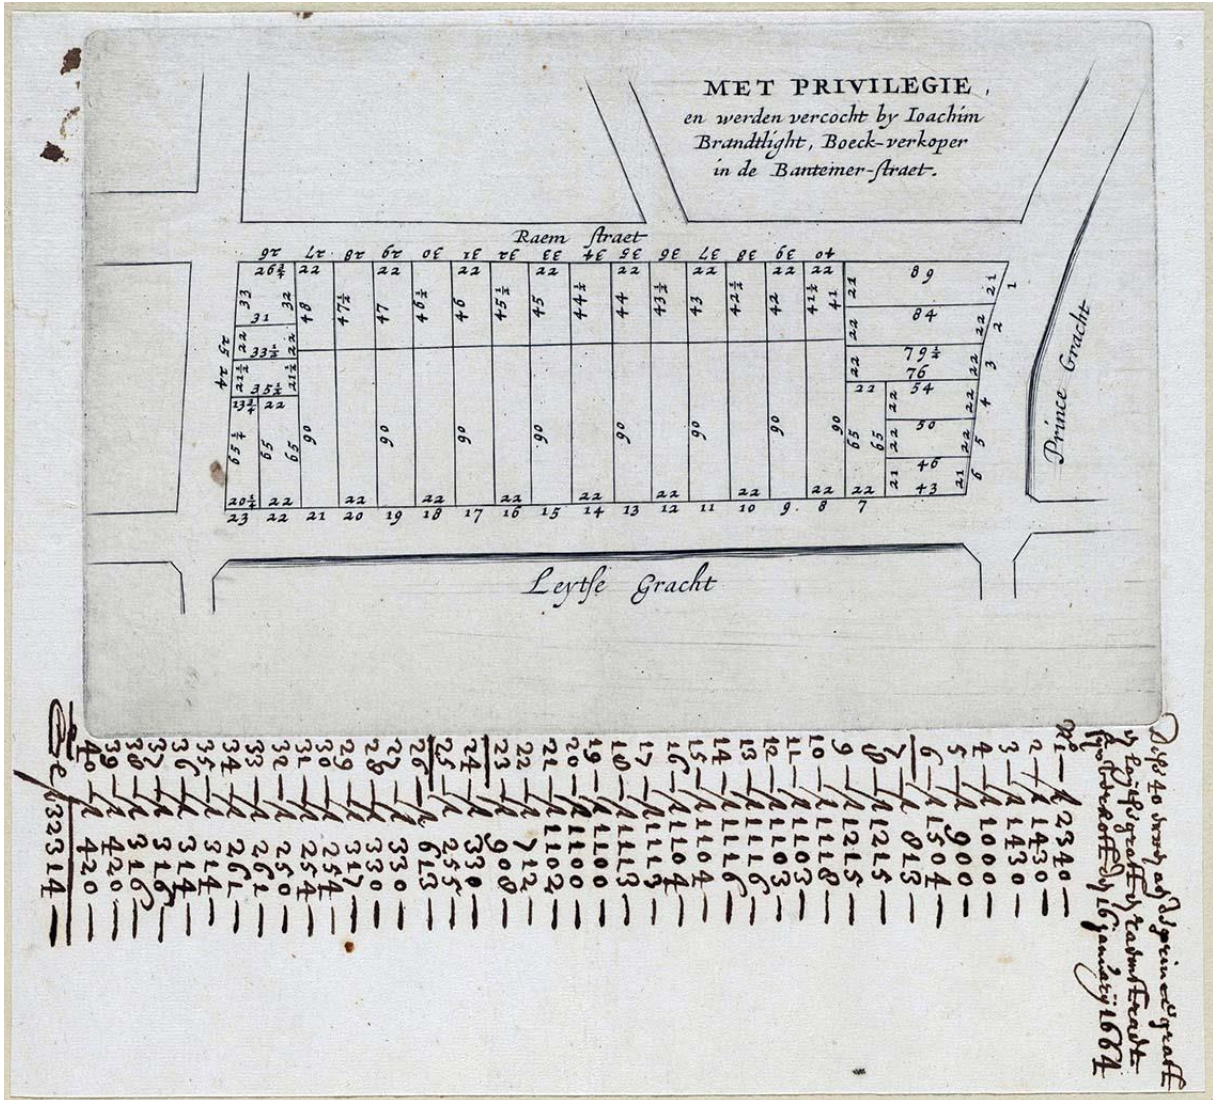 MET PRIVILEGIE,
en werden vercocht by Ioachim
Brandtlight, Boeck-verkoper
in de Bantemer-straet.
Raem straet
26 27 28 29 30 31 32 33 34 35 36 37 38 39 40
26¾ 22 22 22 22 22 22 22 22
33 32 48 47½ 47 46½ 46 45½ 45 44½ 44 43½ 43 42½ 42 41½ 41
31
25 22 33½ 22
24 21½ 35½ 21½
13¾ 22
65 65 90 90 90 90 90 90 90 90 65 65
20¾ 22 22 22 22 22 22 22 22 22
23 22 21 20 19 18 17 16 15 14 13 12 11 10 9. 8 7
21 89 21 1
22 84 22 2
22 79½ 76 22 3
22 22 54 22 4
22 50 22 5
21 46 43 21 6
Prince Gracht
Leytse Gracht
16 januarij 1664
No 1 — 2340 —
2 — 1430 —
3 — 1430 —
4 — 1000 —
5 — 900 —
6 — 1504 —
7 — 813 —
8 — 1215 —
9 — 1215 —
10 — 1118 —
11 — 1103 —
12 — 1103 —
13 — 1116 —
14 — 1116 —
15 — 1104 —
16 — 1104 —
17 — 1113 —
18 — 1113 —
19 — 1100 —
20 — 1100 —
21 — 1102 —
22 — 712 —
23 — 908 —
24 — 330 —
25 — 255 —
26 — 613 —
27 — 330 —
28 — 330 —
29 — 317 —
30 — 254 —
31 — 254 —
32 — 250 —
33 — 261 —
34 — 261 —
35 — 314 —
36 — 314 —
37 — 316 —
38 — 316 —
39 — 420 —
40 — 420 —
32314 —